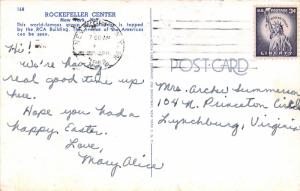 168
ROCKEFELLER CENTER
New York, N.Y.
This world-famous group of buildings is topped
by the RCA Building. The Avenue of the Americas
can be seen.
Hi!
We're having
real good time up
here.
Hope you had a
happy Easter.
Love,
Mary Alice
POST CARD
Mrs. Archi Summerson
104 N. Princeton Circle
Lynchburg, Virginia
U.S. POSTAGE 3¢
LIBERTY